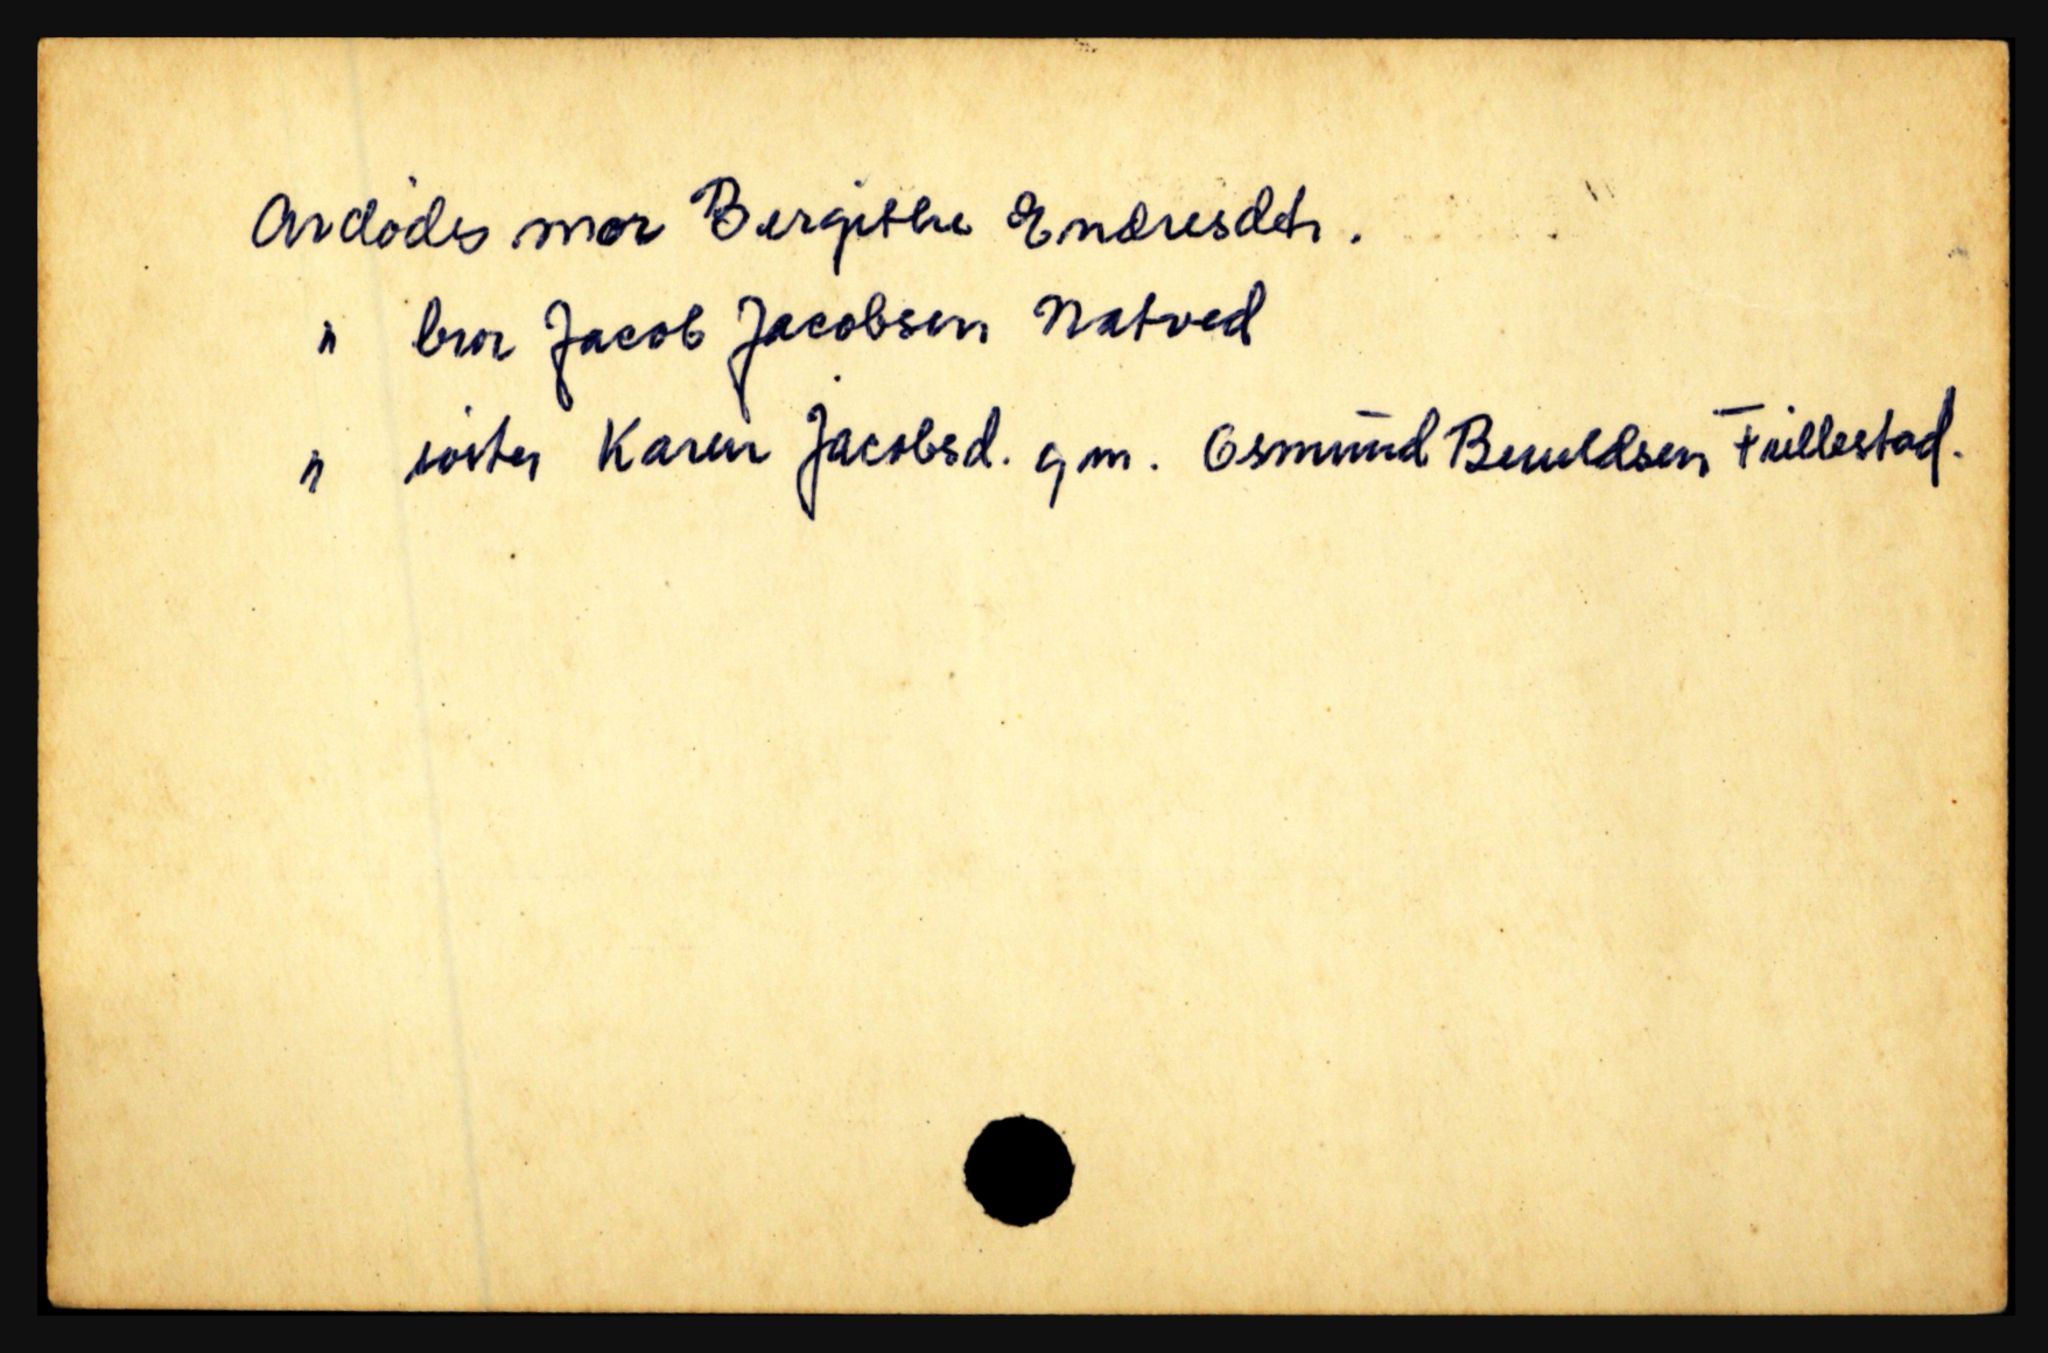 Avdødes mor Bergithe Endresdtr.
" bror Jacob Jacobsen Natved
" søster Karen Jacobsd. gm. Osmund Beruldsen Fullestad.